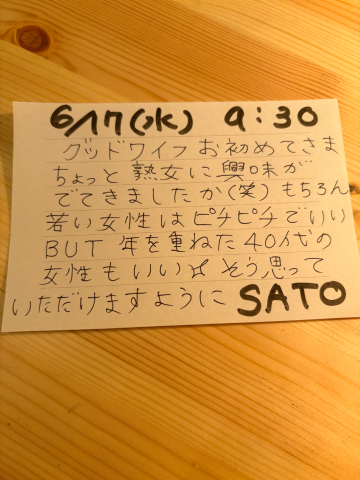 6/17(水) 9:30
グッドワイフ お初めてさま
ちょっと熟女に興味が
でてきましたか(笑)もちろん
若い女性はピチピチでいい
BUT 年を重ねた40代の
女性もいい☆ そう思って
いただけますように SATO